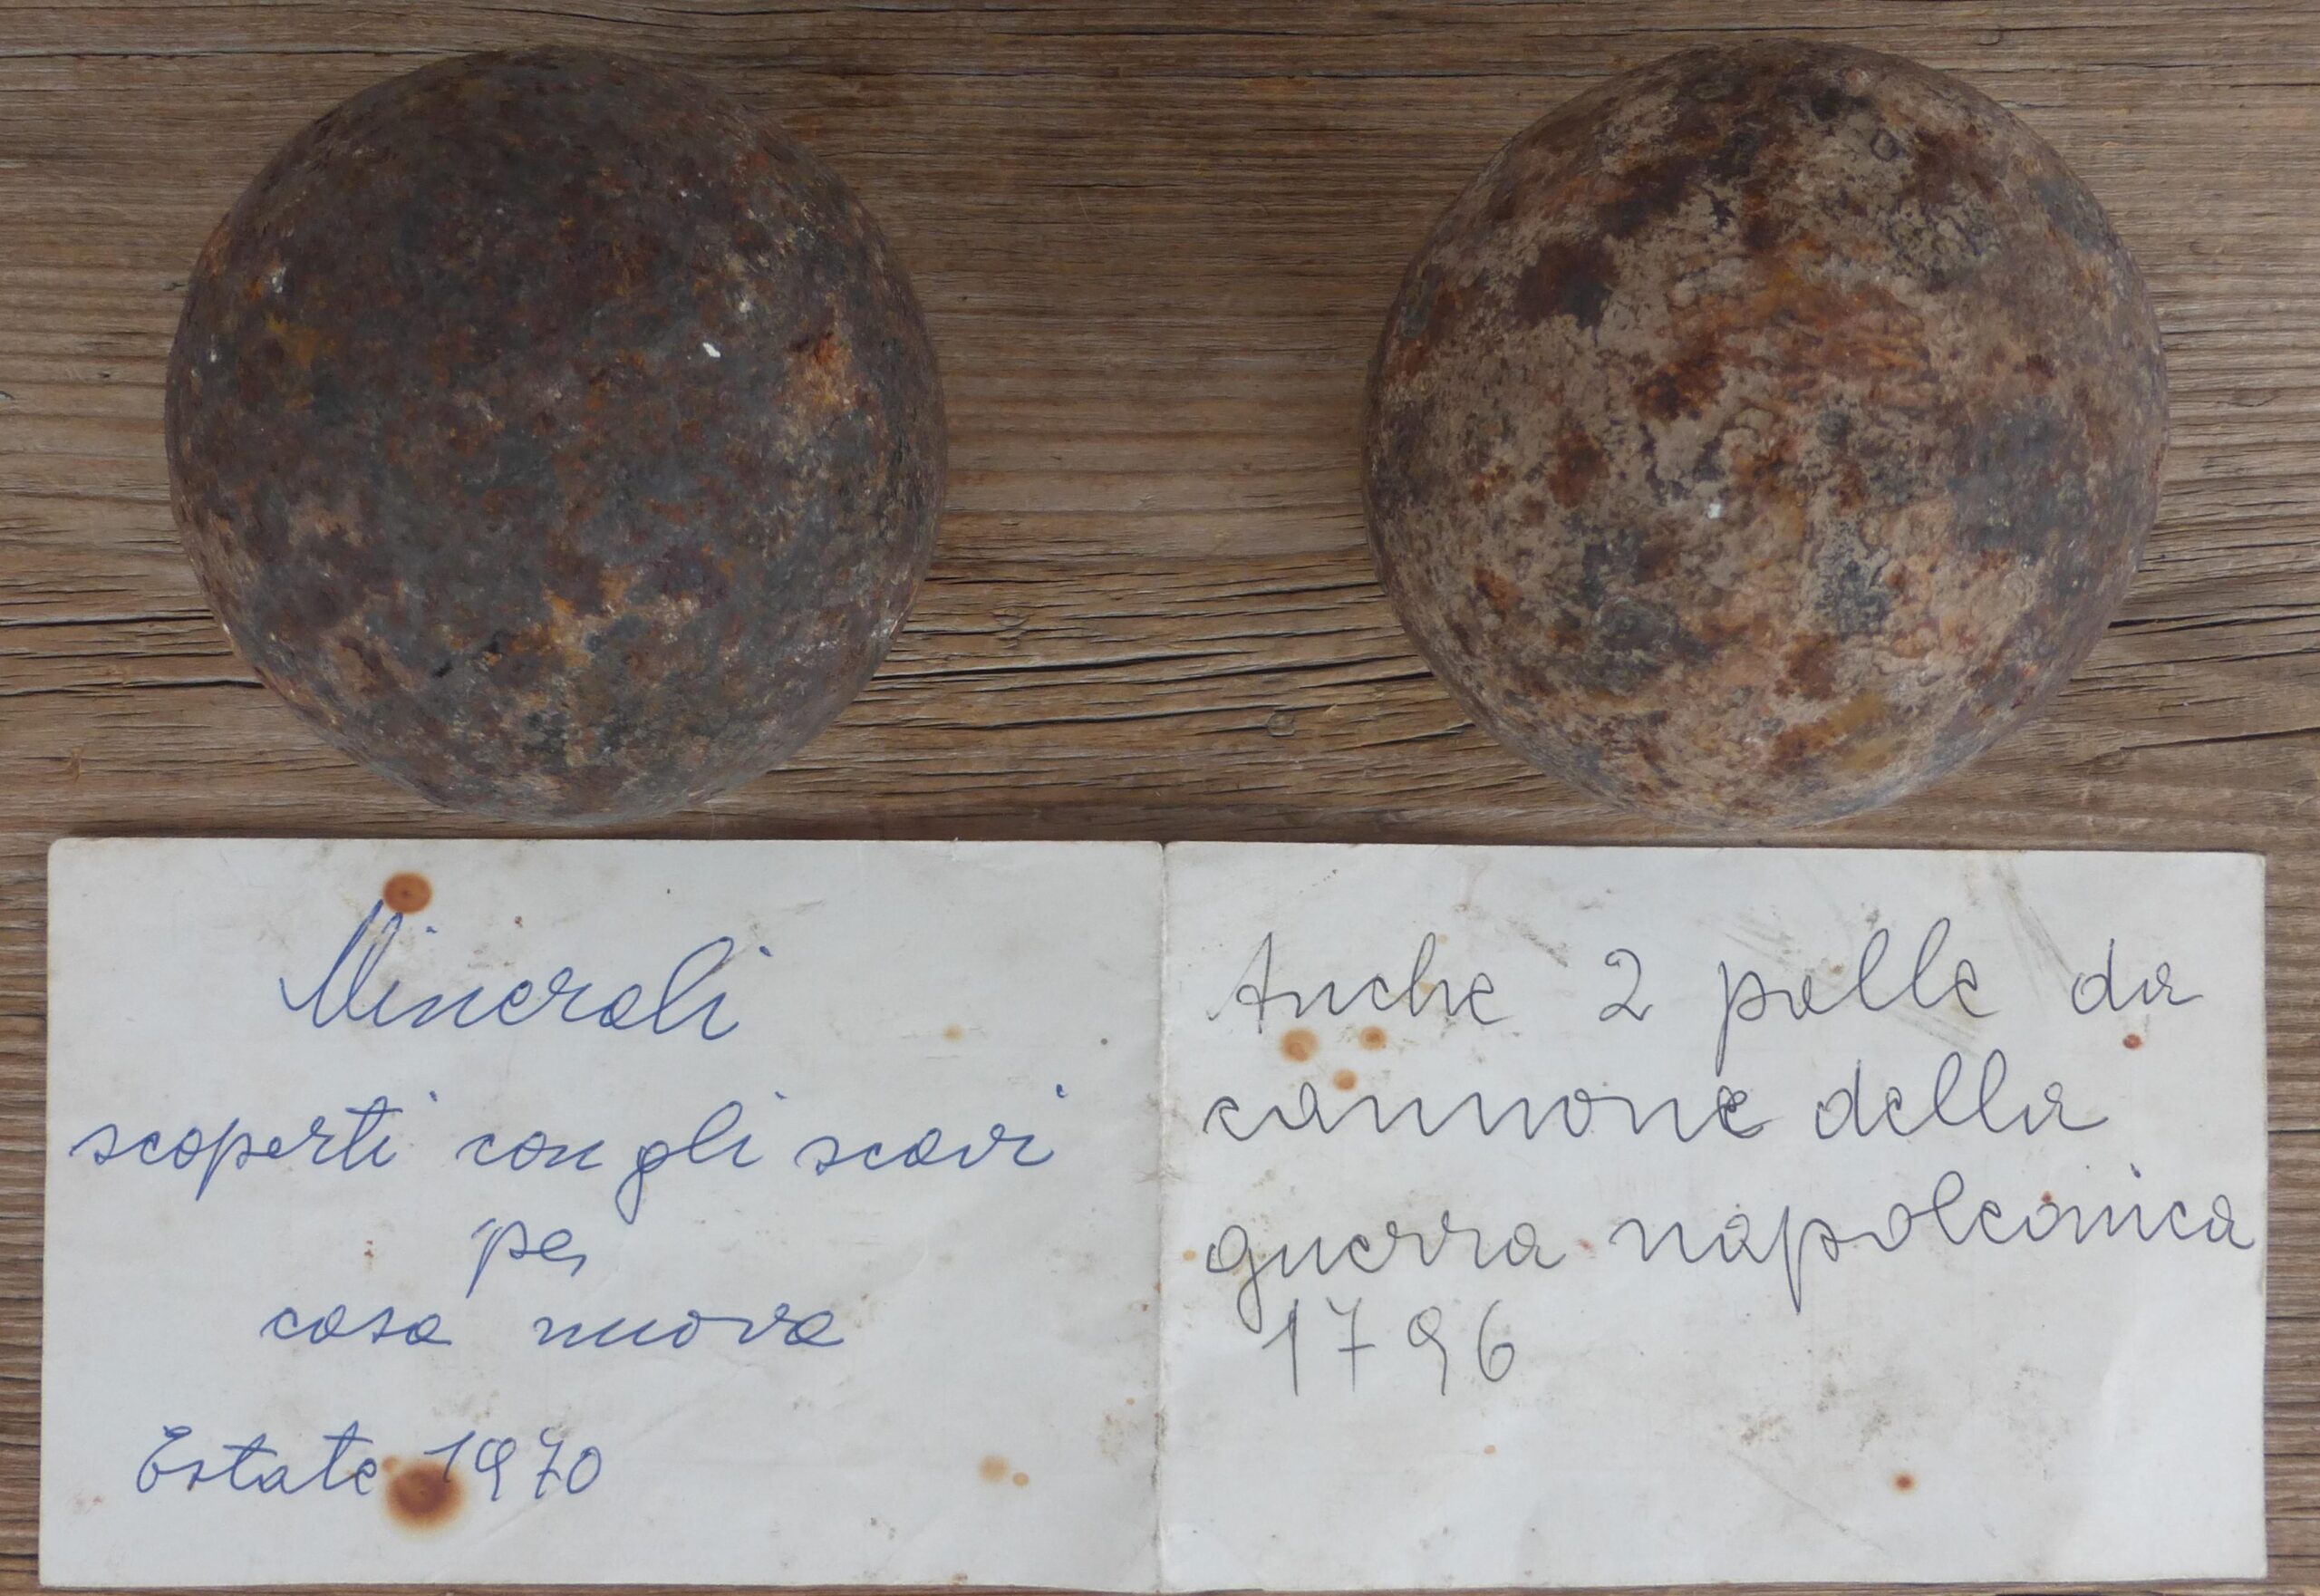 Minerali
scoperti con gli scavi
per
casa nuova
Estate 1970
Anche 2 palle da
cannone della
guerra napoleonica
1796